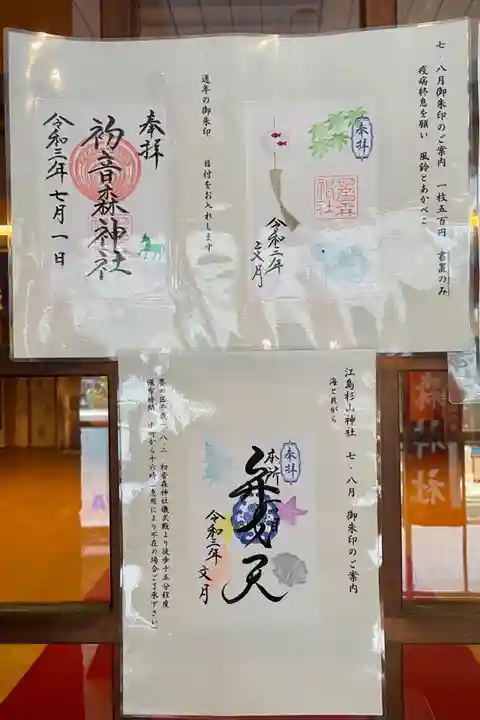 七・八月御朱印のご案内 一枚五百円 書置のみ
疫病終息を願い 風鈴とあかべこ
奉拝
令和三年
文月
通年の御朱印 日付をお入れします
奉拝
初音森神社
令和三年七月一日
江島杉山神社 七・八月 御朱印のご案内
海と貝がら
奉拝
本所
弁才天
令和三年
文月
墨田区千歳一・八・二 初音森神社儀式殿より徒歩十五分程度
頒布時間 十時から十六時(急用により不在の場合ご了承下さい)
神社